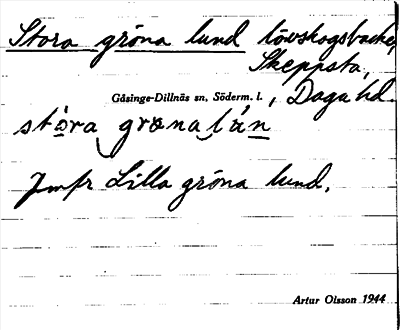 Stora gröna lund lövskogsbacke,
Skeppsta,
Gåsinge-Dillnäs sn, Söderm. l., Daga hd.
stó̱ra gröna lúṉ
Jmfr Lilla gröna lund.
Artur Olsson 1944